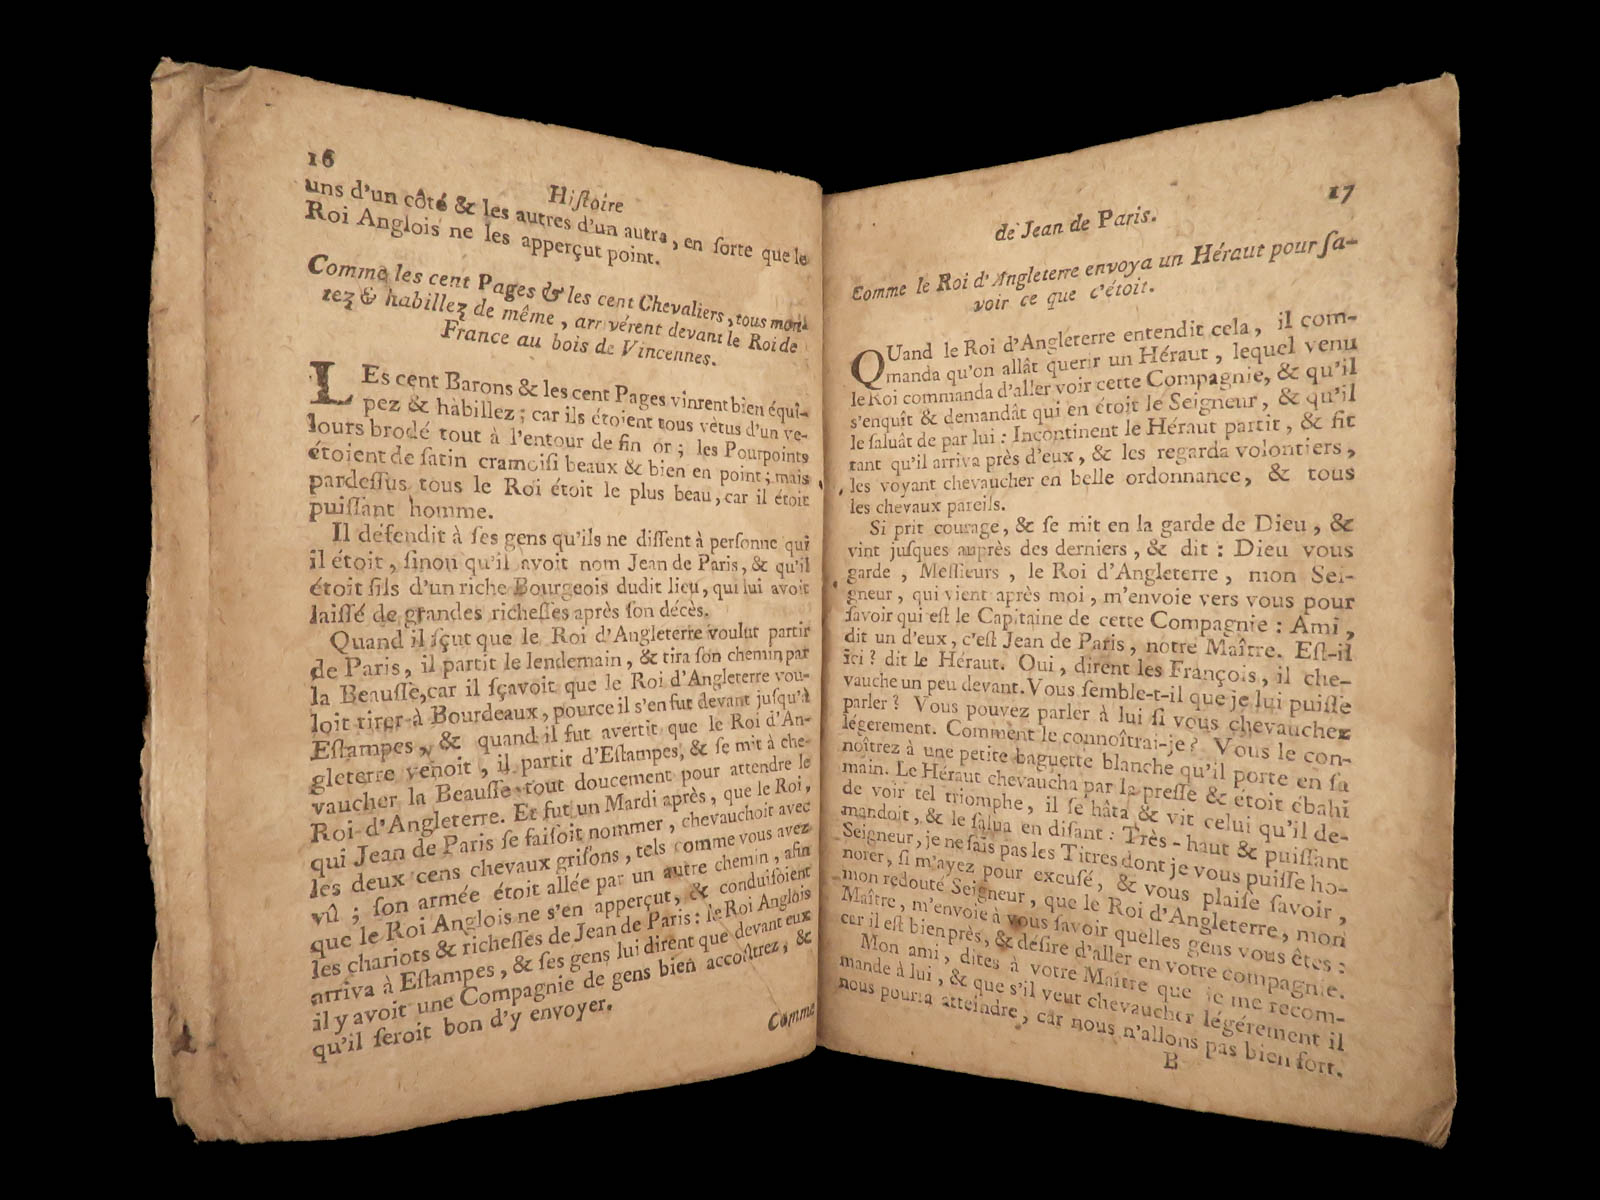 16
Hiſtoire
uns d'un côté & les autres d'un autra, en ſorte que le
Roi Anglois ne les apperçut point.
Comme les cent Pages & les cent Chevaliers, tous mon-
tez & habillez de même, arrivérent devant le Roi de
France au bois de Vincennes.
LEs cent Barons & les cent Pages vinrent bien équi-
pez & habillez; car ils étoient tous vêtus d'un ve-
lours brodé tout à l'entour de fin or; les Pourpoints
étoient de ſatin cramoiſi beaux & bien en point; mais
pardeſſus tous le Roi étoit le plus beau, car il étoit
puiſſant homme.
Il défendit à ſes gens qu'ils ne diſſent à perſonne qui
il étoit, ſinon qu'il avoit nom Jean de Paris, & qu'il
étoit fils d'un riche Bourgeois dudit lieu, qui lui avoit
laiſſé de grandes richeſſes après ſon décès.
Quand il ſçut que le Roi d'Angleterre voulut partir
de Paris, il partit le lendemain, & tira ſon chemin par
la Beauſſe, car il ſçavoit que le Roi d'Angleterre vou-
loit tirer à Bourdeaux, pource il s'en fut devant juſqu'à
Eſtampes, & quand il fut avertit que le Roi d'An-
gleterre venoit, il partit d'Eſtampes, & ſe mit à che-
vaucher la Beauſſe tout doucement pour attendre le
Roi d'Angleterre. Et fut un Mardi après, que le Roi,
qui Jean de Paris ſe faiſoit nommer, chevauchoit avec
les deux cens chevaux griſons, tels comme vous avez
vû; ſon armée étoit allée par un autre chemin, afin
que le Roi Anglois ne s'en apperçut, & conduiſoient
les chariots & richeſſes de Jean de Paris: le Roi Anglois
arriva à Eſtampes, & ſes gens lui dirent que devant eux
il y avoit une Compagnie de gens bien accoûtrez, &
qu'il ſeroit bon d'y envoyer.
Comme
17
de Jean de Paris.
Comme le Roi d'Angleterre envoya un Héraut pour ſa-
voir ce que c'étoit.
QUand le Roi d'Angleterre entendit cela, il com-
manda qu'on allât querir un Héraut, lequel venu
le Roi commanda d'aller voir cette Compagnie, & qu'il
s'enquît & demandât qui en étoit le Seigneur, & qu'il
le ſaluât de par lui: Incontinent le Héraut partit, & fit
tant qu'il arriva près d'eux, & les regarda volontiers,
les voyant chevaucher en belle ordonnance, & tous
les chevaux pareils.
Si prit courage, & ſe mit en la garde de Dieu, &
vint juſques auprès des derniers, & dit: Dieu vous
garde, Meſſieurs, le Roi d'Angleterre, mon Sei-
gneur, qui vient après moi, m'envoie vers vous pour
ſavoir qui eſt le Capitaine de cette Compagnie: Ami,
dit un d'eux, c'eſt Jean de Paris, notre Maître. Eſt-il
ici? dit le Héraut. Oui, dirent les François, il che-
vauche un peu devant. Vous ſemble-t-il que je lui puiſſe
parler? Vous pouvez parler à lui ſi vous chevauchez
légerement. Comment le connoîtrai-je? Vous le con-
noîtrez à une petite baguette blanche qu'il porte en ſa
main. Le Héraut chevaucha par la preſſe & étoit ébahi
de voir tel triomphe, il ſe hâta & vit celui qu'il de-
mandoit, & le ſalua en diſant: Très-haut & puiſſant
Seigneur, je ne ſais pas les Titres dont je vous puiſſe ho-
norer, ſi m'ayez pour excuſé, & vous plaiſe ſavoir,
mon redouté Seigneur, que le Roi d'Angleterre, mon
Maître, m'envoie à vous ſavoir quelles gens vous êtes:
car il eſt bien près, & déſire d'aller en votre compagnie.
Mon ami, dites à votre Maître que je me recom-
mande à lui, & que s'il veut chevaucher légérement il
nous pourra atteindre, car nous n'allons pas bien fort.
B